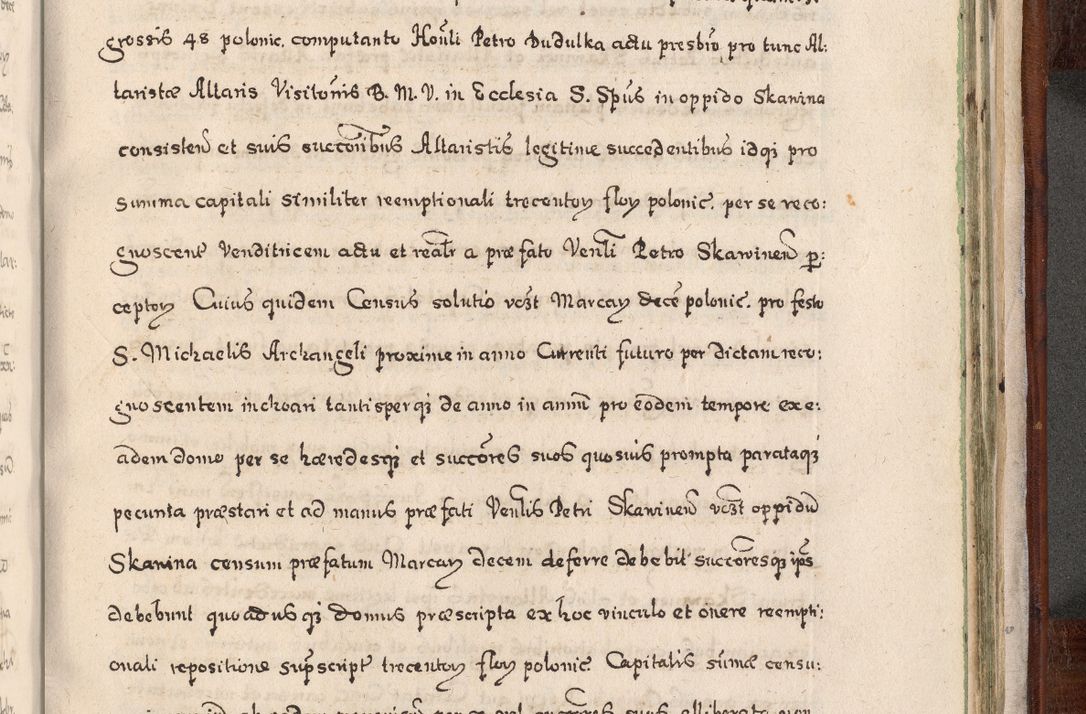 grossis 48 polonic. computanto Honli Petro Dudulka actu presbro pro tunc Al:
taristæ Altaris Visitonis B. M. V. in Ecclesia S. Spus in oppido Skawina
consisten et suis succoribus Altaristis legitime succedentibus idq pro
summa capitali similiter reemptionali trecentoy floy polonic. per se reco:
gnoscent Venditricem actu et realr a præfato Venli Petro Skawinen per:
ceptoy Cuius quidem Census solutio vczt Marcay dece polonic. pro festo
S. Michaelis Archangeli proxime in anno Currenti futuro per dictam reco:
gnoscentem inchoari tantisperq de anno in annu pro eodem tempore ex e:
adem domo per se hæredesq et succores suos quosvis prompta parataq
pecunia præstari et ad manus præfati Venlis Petri Skawinen vczt oppidu
Skawina censum præfatum Marcay decem deferre debebit succoresq ips
debebunt quoadusq domus præscripta ex hoc vinculo et onere reempti:
onali repositione supscript trecentoy floy polonic Capitalis sumæ censu: